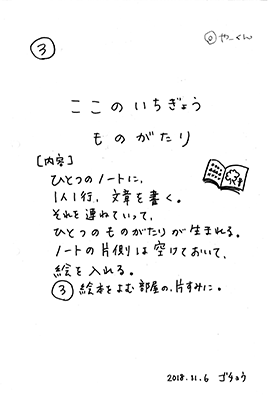 ③
◎やーくん
ここのいちぎょう
ものがたり
[内容]
ひとつのノートに、
1人1行、文章を書く。
それを連ねていって、
ひとつのものがたりが生まれる。
ノートの片側は空けておいて、
絵を入れる。
③絵本をよむ部屋の片すみに。
2018.11.6 ゴチョウ